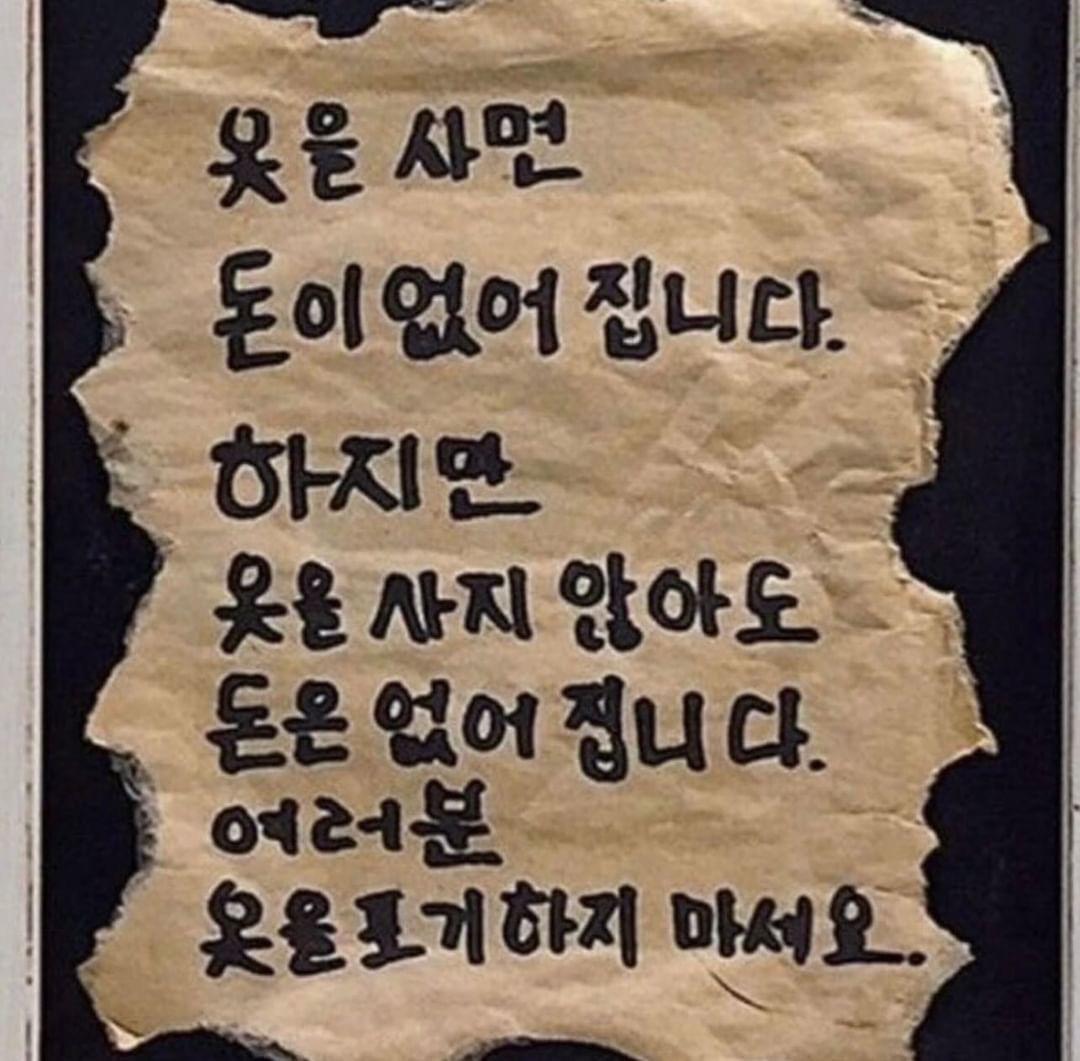 옷을 사면
돈이 없어 집니다.
하지만
옷을 사지 않아도
돈은 없어 집니다.
여러분
옷을 포기하지 마세요.